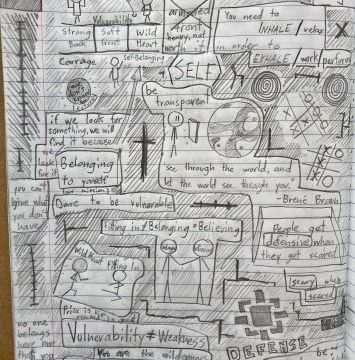 Vulnerability
Strong
Back
Soft
Front
Wild
Heart
armored
front
heavy, not
worth it
You need to
INHALE / relax
in order to
EXHALE / work
perform
Courage
Self-Belonging
SELF
be
transparent
if we look for
something, we will
find it because
we
look
for it
Belonging
to yourself
Dare to be vulnerable
see through the world, and
let the world see through you.
- Brené Brown
you can't
give what
you don't
have
Fitting in ≠ Belonging = Believing
People get
defensive when
they get scared
Wild Heart
Fitting In
scary when
scared
Price is
Vulnerability ≠ Weakness
no one
belongs
here more
than you
You are the wilderness
DEFENSE
be